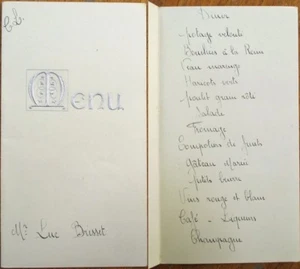 Menu
Mr Luc Brisset
Diner
potage velouté
Bouchées à la Reine
Veau marengo
Haricots verts
poulet grain rôti
Salade
Fromage
Compotier de fruits
gâteau Marié
petits beurre
Vins rouge et blanc
Café - Liqueurs
Champagne